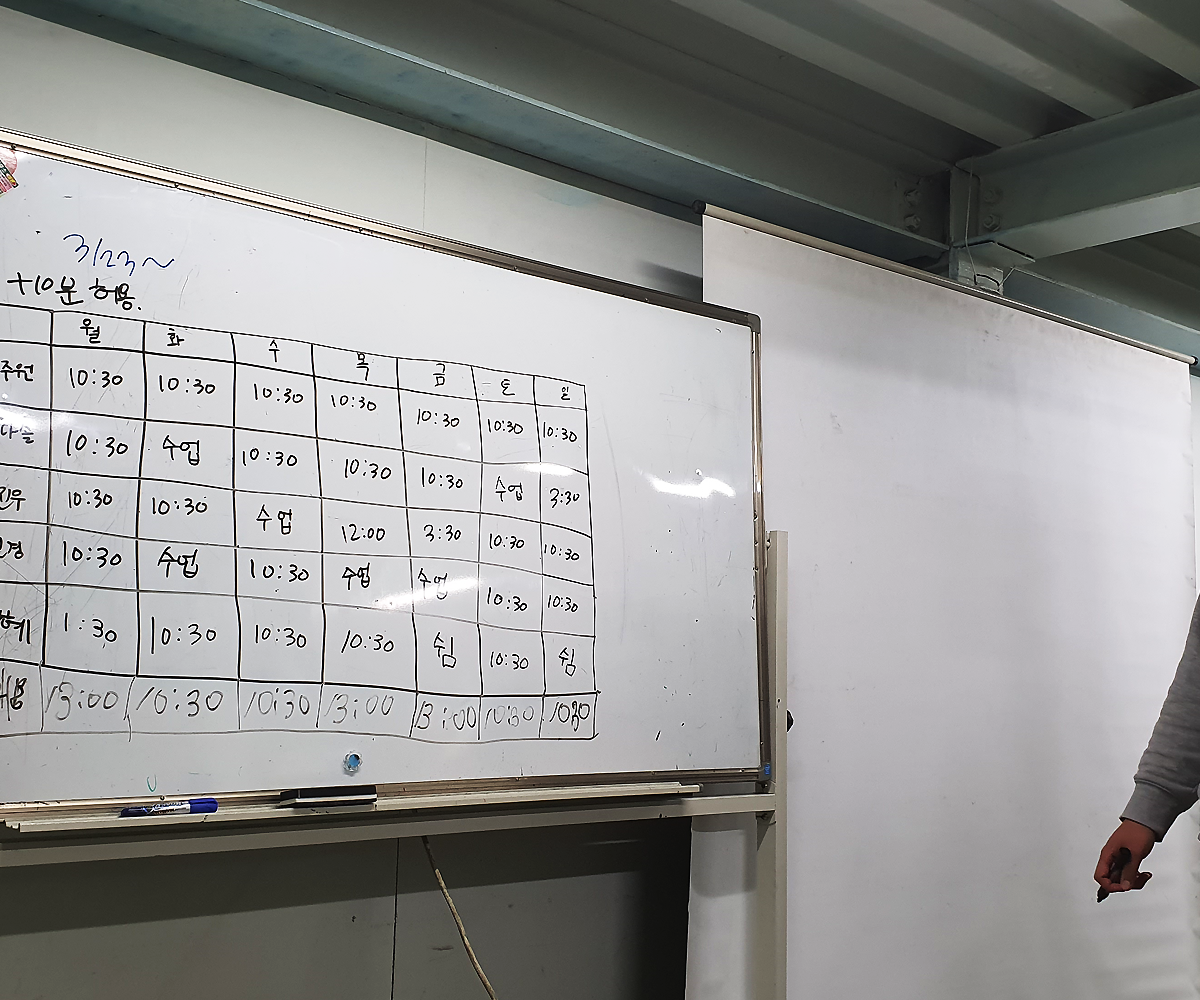 3/23~
+10분 허용.
월 화 수 목 금 토 일
주원 10:30 10:30 10:30 10:30 10:30 10:30 10:30
다솔 10:30 수업 10:30 10:30 10:30 수업 3:30
진우 10:30 10:30 수업 12:00 3:30 10:30 10:30
10:30 수업 10:30 수업 수업 10:30 10:30
1:30 10:30 10:30 10:30 쉼 10:30 쉼
13:00 10:30 10:30 13:00 13:00 10:30 10:30